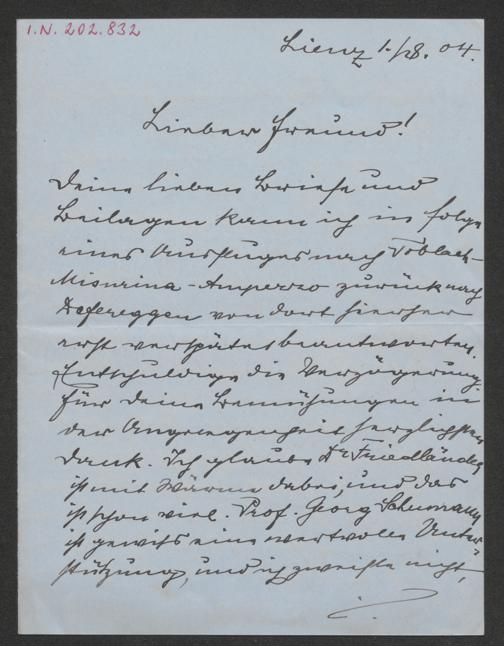 I.N. 202.832
Lienz 1./8. 04.
Lieber Freund!
Deine lieben Briefe und
Beilagen kann ich in folge
eines Ausfluges nach Toblach-
Misurina-Ampezzo zurück nach
Defereggen von dort hierher
erst verspätet beantworten.
Entschuldige die Verzögerung
für deine Bemühungen in
der Angelegenheit herzlichsten
Dank. Ich glaube Dr Friedländer
ist mit Wärme dabei, und das
ist schon viel. Prof. Georg Schumann
ist gewiß eine wertvolle Unter-
stützung, und ich zweifle nicht,